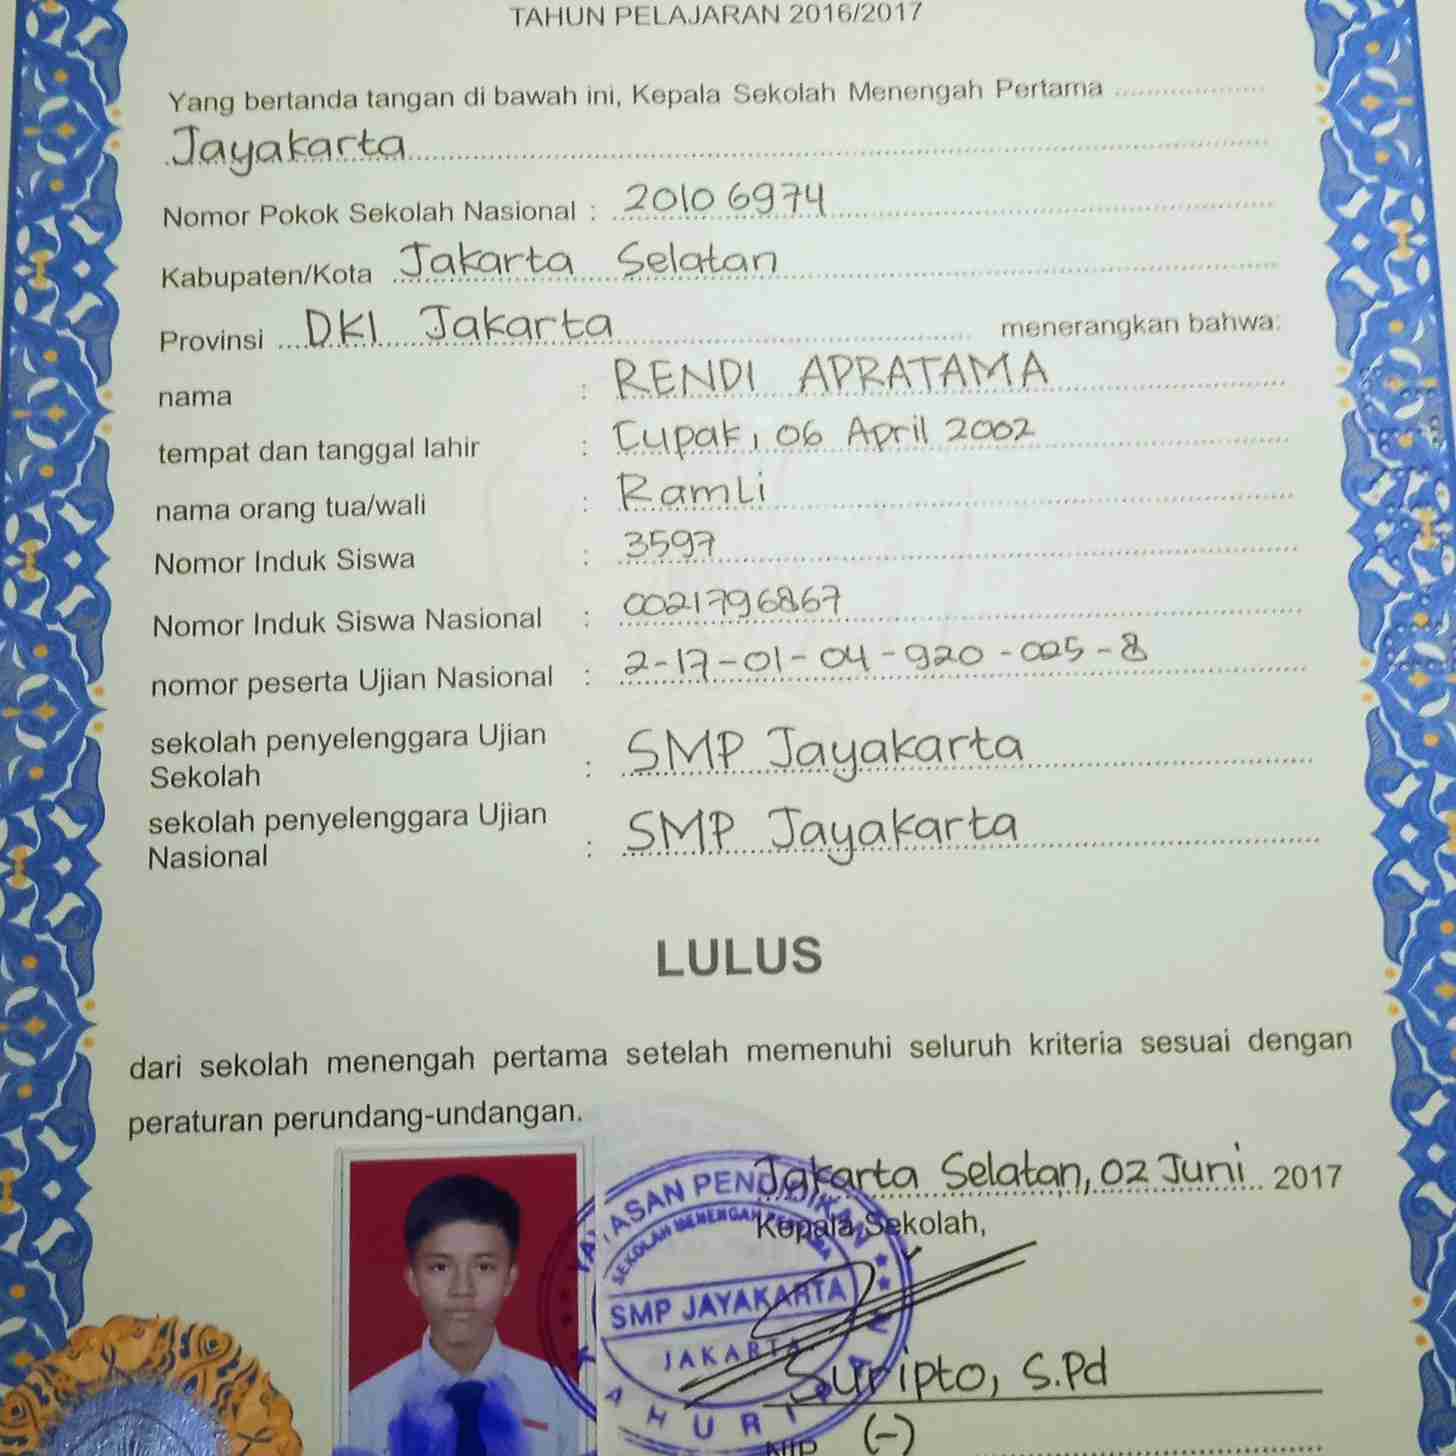 TAHUN PELAJARAN 2016/2017
Yang bertanda tangan di bawah ini, Kepala Sekolah Menengah Pertama
Jayakarta
Nomor Pokok Sekolah Nasional : 20106974
Kabupaten/Kota Jakarta Selatan
Provinsi DKI Jakarta menerangkan bahwa:
nama : RENDI APRATAMA
tempat dan tanggal lahir : Cupak, 06 April 2002
nama orang tua/wali : RamLi
Nomor Induk Siswa : 3597
Nomor Induk Siswa Nasional : 0021796867
nomor peserta Ujian Nasional : 2-17-01-04-920-025-8
sekolah penyelenggara Ujian
Sekolah : SMP Jayakarta
sekolah penyelenggara Ujian
Nasional : SMP Jayakarta
LULUS
dari sekolah menengah pertama setelah memenuhi seluruh kriteria sesuai dengan
peraturan perundang-undangan.
Jakarta Selatan, 02 Juni 2017
Kepala Sekolah,
YAYASAN PENDIDIKAN
SEKOLAH MENENGAH PERTAMA
SMP JAYAKARTA
JAKARTA
KAHURIPAN
Suripto, S.Pd
NIP (-)